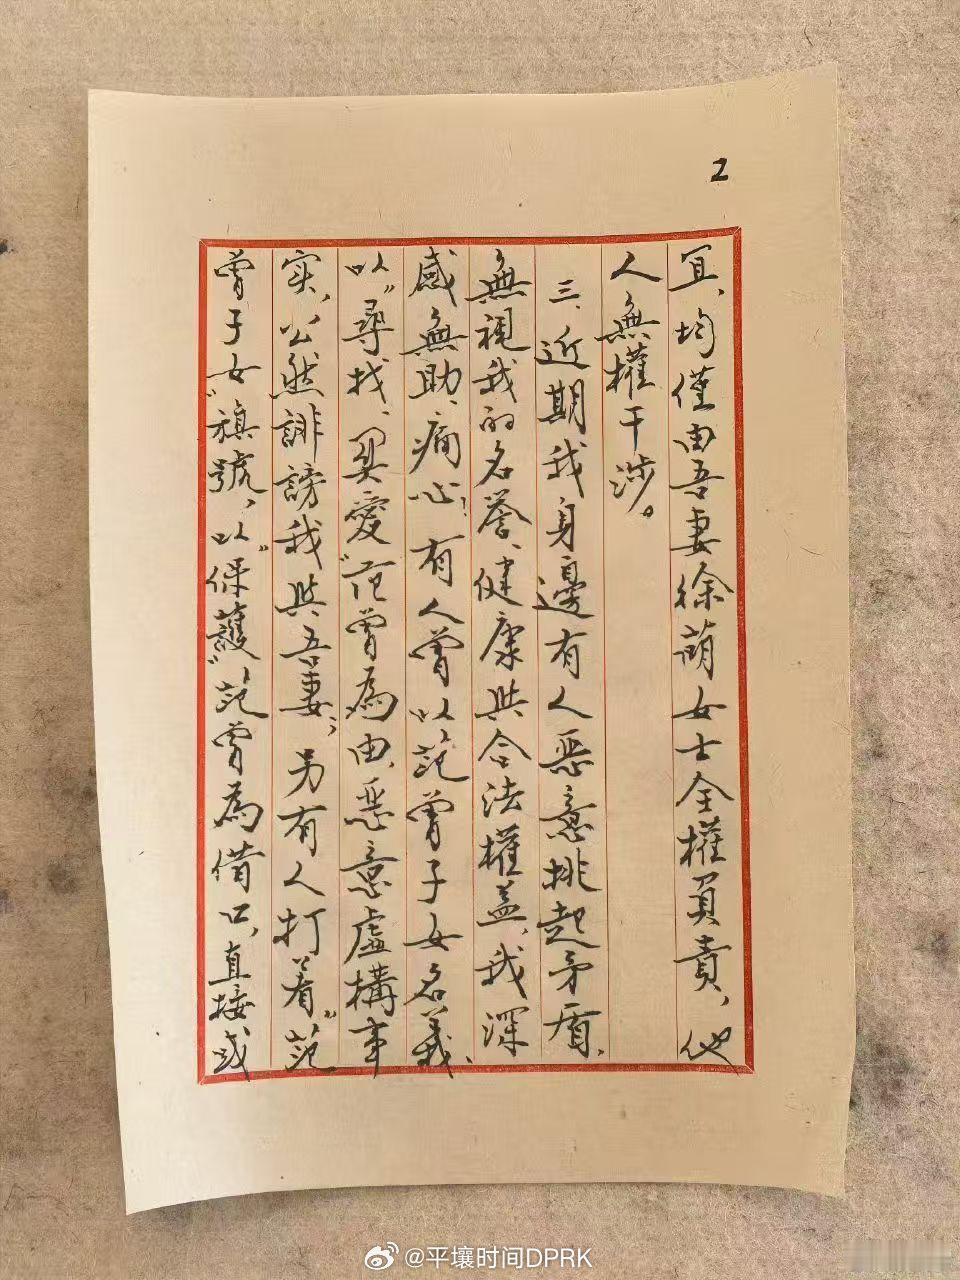 2
宜、均僅由吾妻徐萌女士全權負責，他
人無權干涉。
三、近期我身邊有人惡意挑起矛盾、
無視我的名譽、健康與合法權益，我深
感無助、痛心！有人曾以范曾子女名義、
以“尋找、関愛”范曾為由，惡意虛構事
实，公然誹謗我與吾妻；另有人打着“范
曾子女”旗號，以“保護”范曾為借口，直接或
@平壤时间DPRK